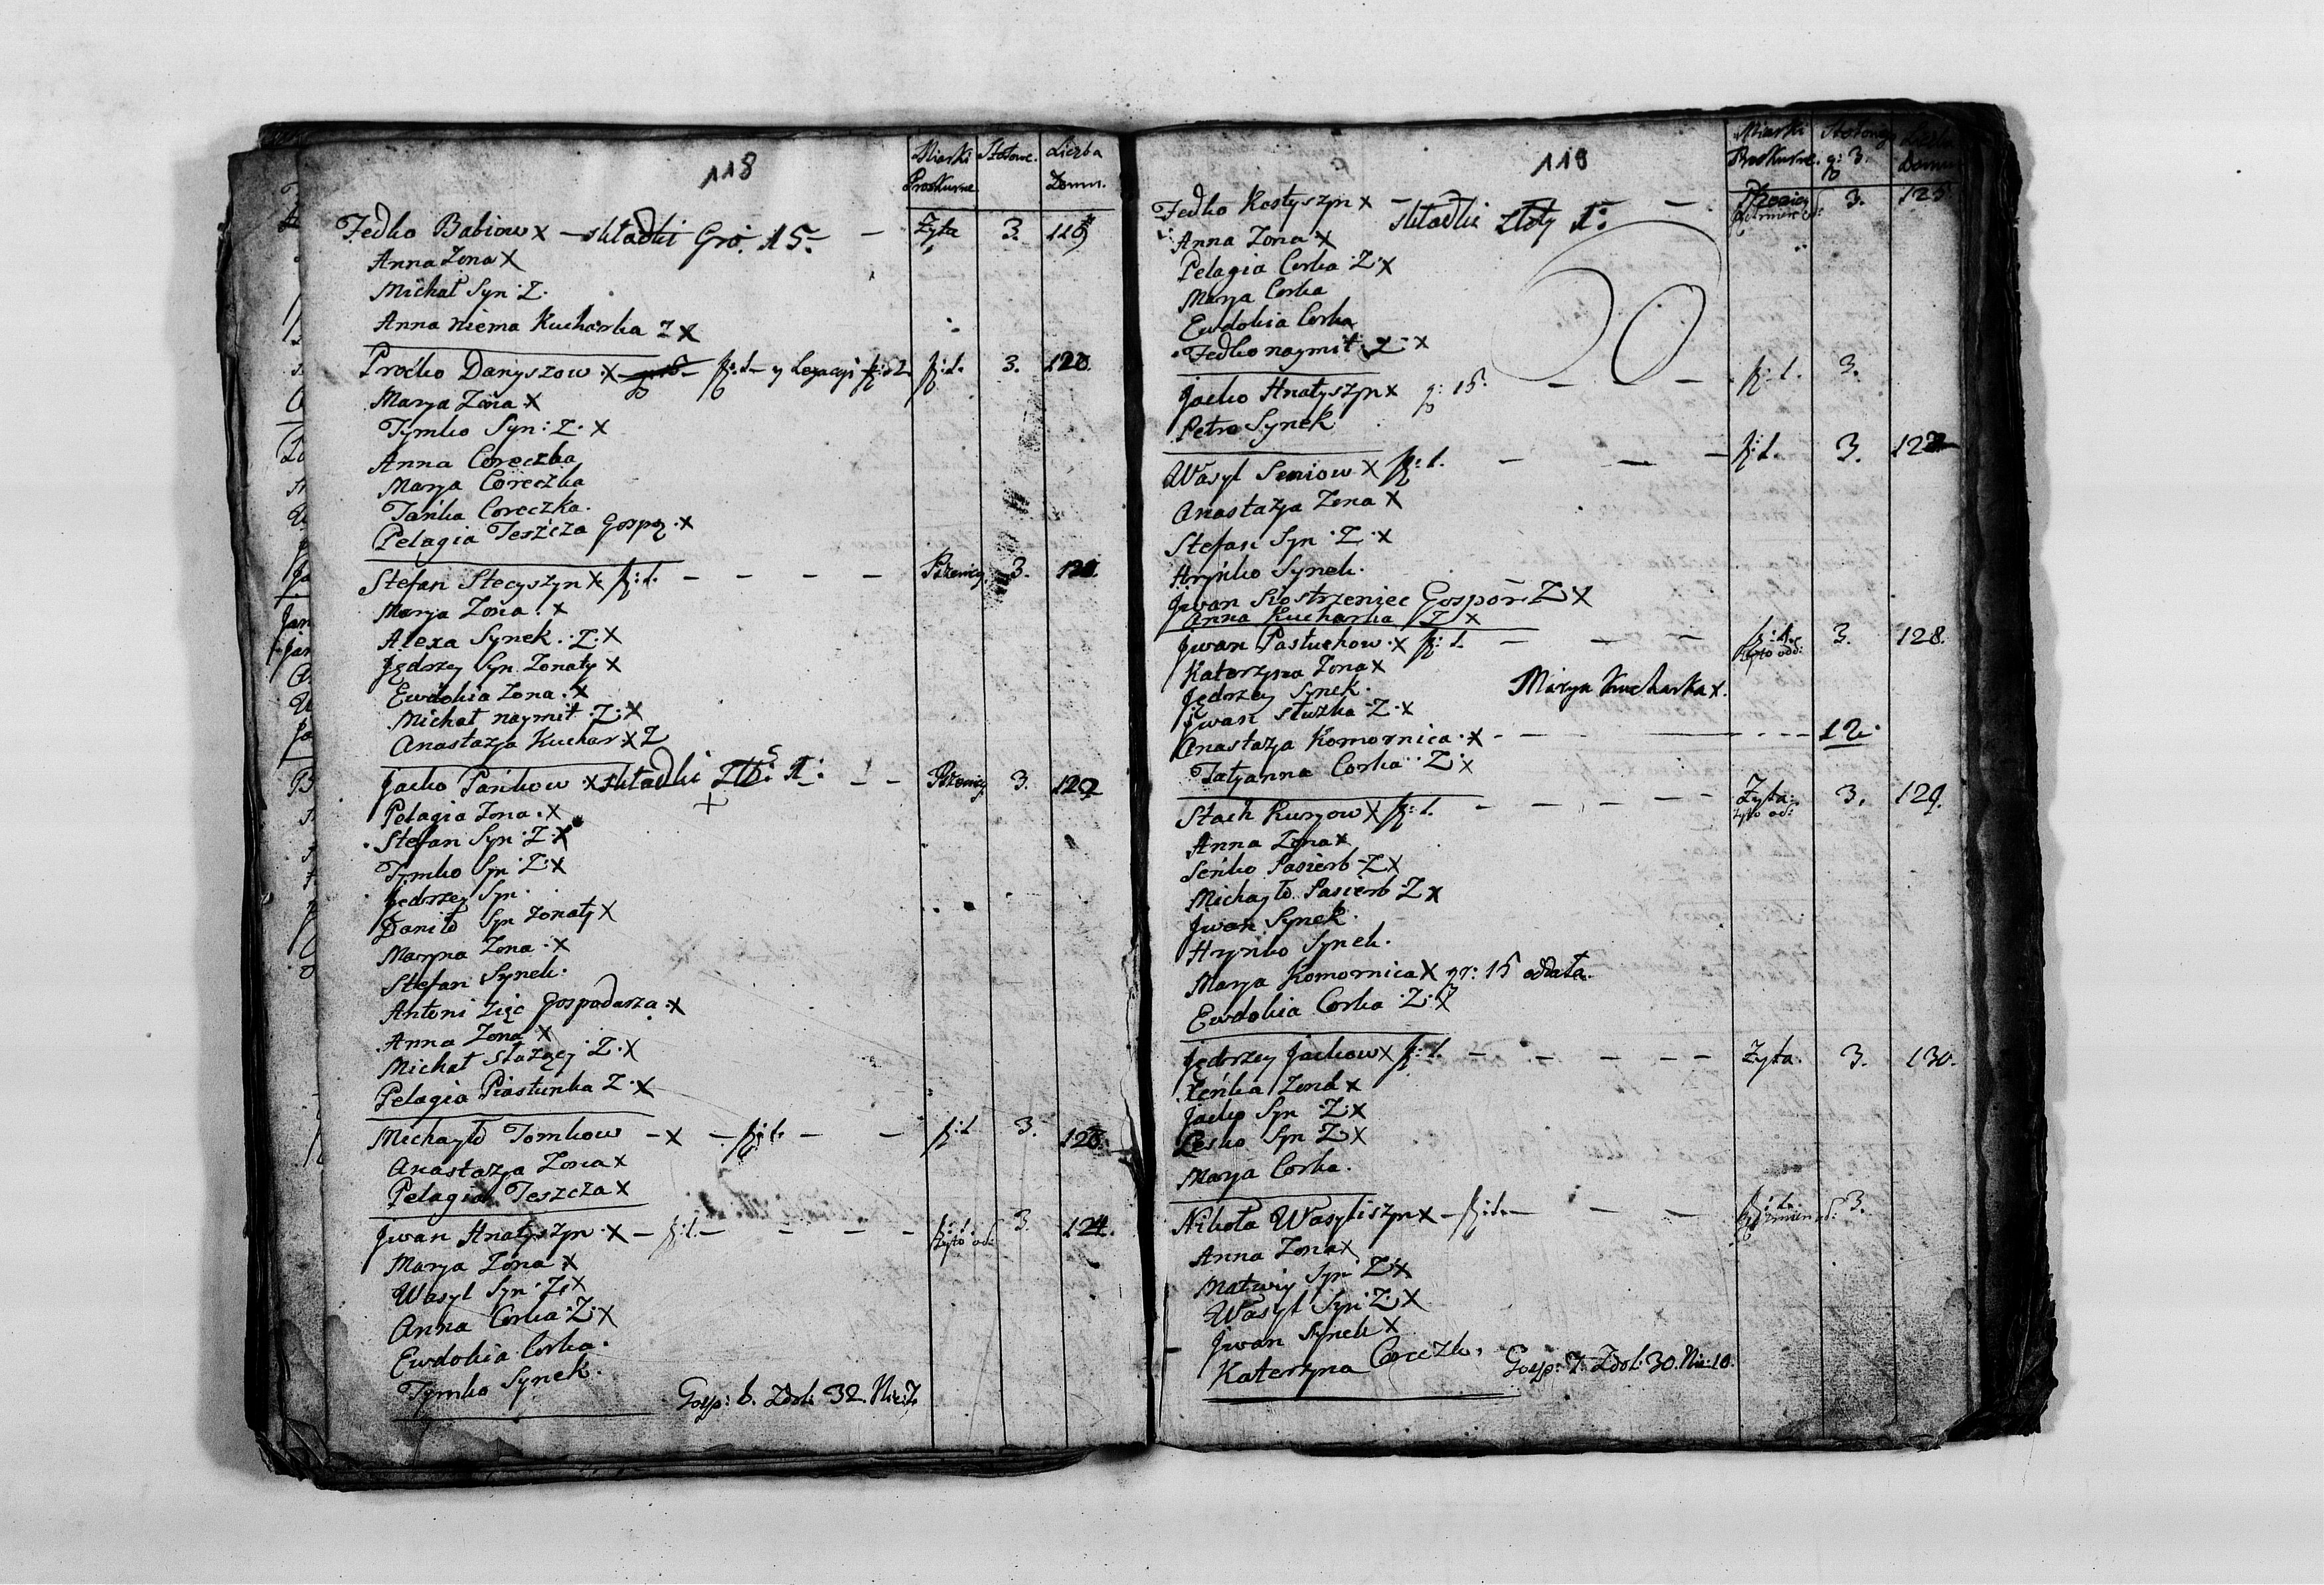 118
Miarki Proskurne. Stołowe. Liczba Domu.
Fedko Babiow x – składki Gro. 15. – Zyta 3. 119
Anna Zona x
Michał Syn. Z.
Anna niema Kucharka Z x
Proćko Danyszow x f: 1. y Legacyi f: 1. 3. 120.
Marya Zona x
Tymko Syn: Z. x
Anna Coreczka
Marya Coreczka
Tańka Coreczka.
Pelagia Teszcza Gospo. x
Stefan Stecyszyn x f: 1. – – – – Pszenicy 3. 121.
Marya Zona. x
Alexa Synek. Z. x
Jędrzey Syn Zonaty x
Ewdokia Zona. x
Michał naymit Z: x
Anastazya Kuchar x Z
Jacko Pańkow x składki Złt: 1: – – Pszenicy 3. 122
Pelagia Zona. x
Stefan Syn Z. x
Tymko Syn Z: x
Jędrzey Syn.
Daniło Syn Zonaty x
Maryna Zona. x
Stefan Synek.
Antoni Zięć Gospodarza. x
Anna Zona x
Michał Służący Z. x
Pelagia Piastunka Z. x
Michayło Tomkow – x – f: 1. – – f: 1 3. 123.
Anastazya Zona x
Pelagia Teszcza x
Jwan Hnatyszyn. x – f: 1. – – – – f: 1. 3. 124.
Żyto od:
Marya Zona x
Wasyl Syn Z. x
Anna Corka Z: x
Ewdokia Corka.
Tymko Synek.
Gosp: 6. Zdol: 32. Nie: 7.
119
Miarki Proskurne. Stołowego g: 3. Liczba Domu
Fedko Kostyszyn x – składki Złoty 1: – Pszenicy 3. 125.
Anna Zona x
Pelagia Corka Z. x
Marya Corka
Ewdokia Corka
Fedko naymit Z x
Jacko Hnatyszyn x g: 15. – – – f: 1. 3.
Petro Synek
Wasyl Seniow x f: 1. – – – f: 1. 3. 127
Anastazya Zona x
Stefan Syn Z. x
Hryńko Synek.
Jwan Siostrzeniec Gospor Z x
Anna Kucharka Z x
Jwan Pastuchow. x f: 1. – – – f: 1. 3. 128.
Żyto odd:
Katarzyna Zona x
Jędrzey Synek. Marya Kucharka x.
Jwan służka Z. x
Anastazya Komornica. x – – – 12.
Tatyanna Corka Z: x
Stach Kuryow x f: 1. – – – – – Zyta. 3. 129.
Żyto od:
Anna Zona x
Seńko Pasierb Z x
Michayło Pasierb Z x
Jwan Synek.
Hryńko Synek.
Marya Komornica x gr: 15 oddała.
Ewdokia Corka Z. x
Jędrzey Jackow x f: 1. – – – – Zyta. 3. 130.
Xeńka Zona x
Jacko Syn Z x
Lesko Syn Z x
Marya Corka.
Nikoła Wasyliszyn x – f: 1. – – – f: 1. 3.
Anna Zona x
Matwiy Syn Z. x
Wasyl Syn Z. x
Jwan Synek x
Katerzyna Coreczk.
Gosp: 7. Zdol: 30. Nie: 10.